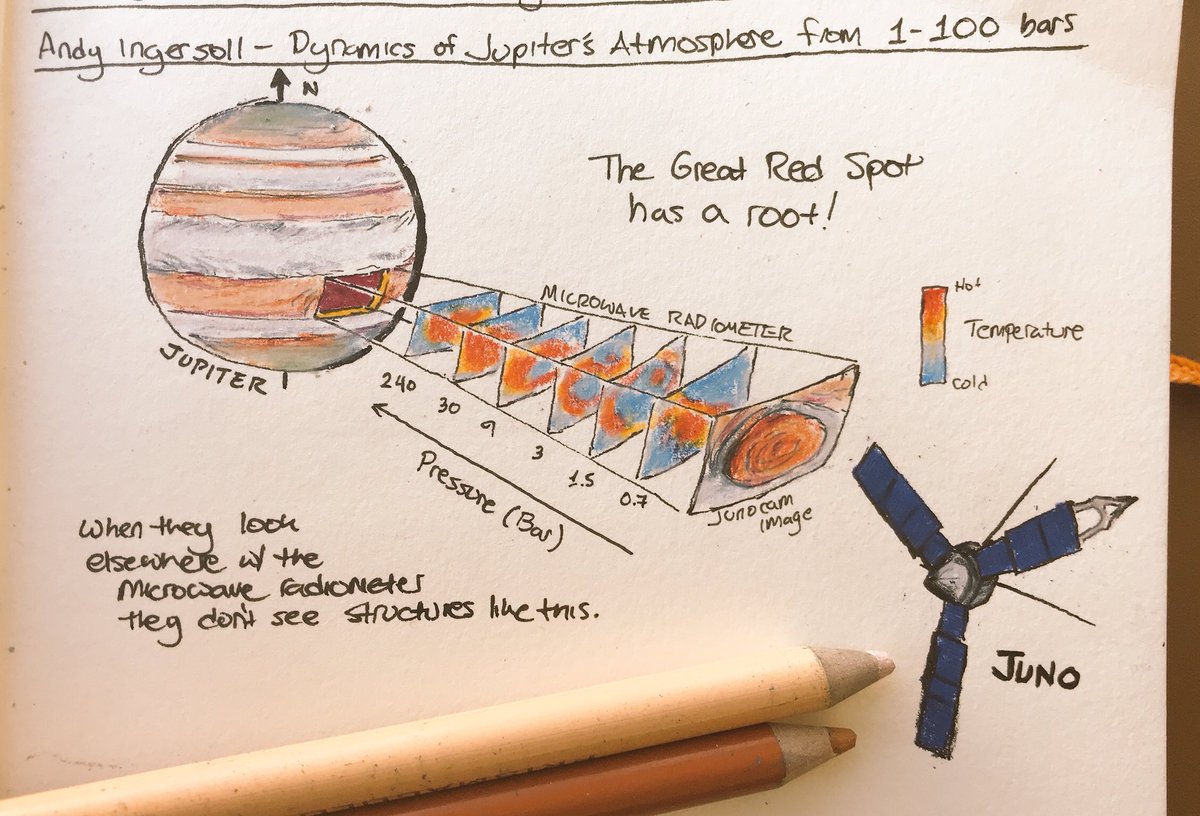 Andy Ingersoll - Dynamics of Jupiter's Atmosphere from 1-100 bars
N
The Great Red Spot
has a root!
MICROWAVE RADIOMETER
Hot
Temperature
Cold
JUPITER
240
30
9
3
1.5
0.7
Pressure (Bar)
Junocam
image
When they look
elsewhere w/ the
Microwave radiometer
they don't see structures like this.
JUNO